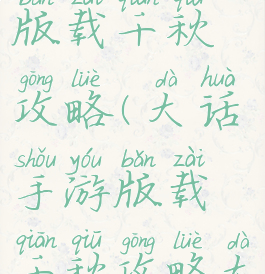 bǎn zài qiān qiū
版载千秋
gōng lüè dà huà
攻略(大话
shǒu yóu bǎn zài
手游版载
qiān qiū gōng lüè dà
千秋攻略大